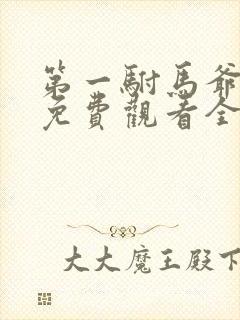 第一駙馬爺
免費觀看全
大大魔王殿下